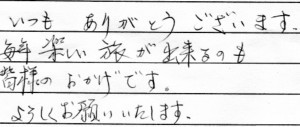 いつも ありがとう ございます.
毎年 楽しい 旅 が 出来るのも
皆様の おかげです。
よろしくお願いいたします.